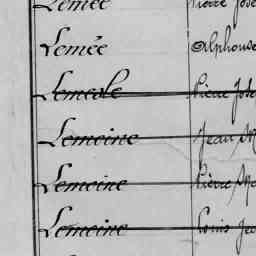 Lemée Pierre José
Lemée Alphonse
Lemesle Pierre José
Lemoine Jean M
Lemoine Pierre Ma
Lemoine Louis Jea